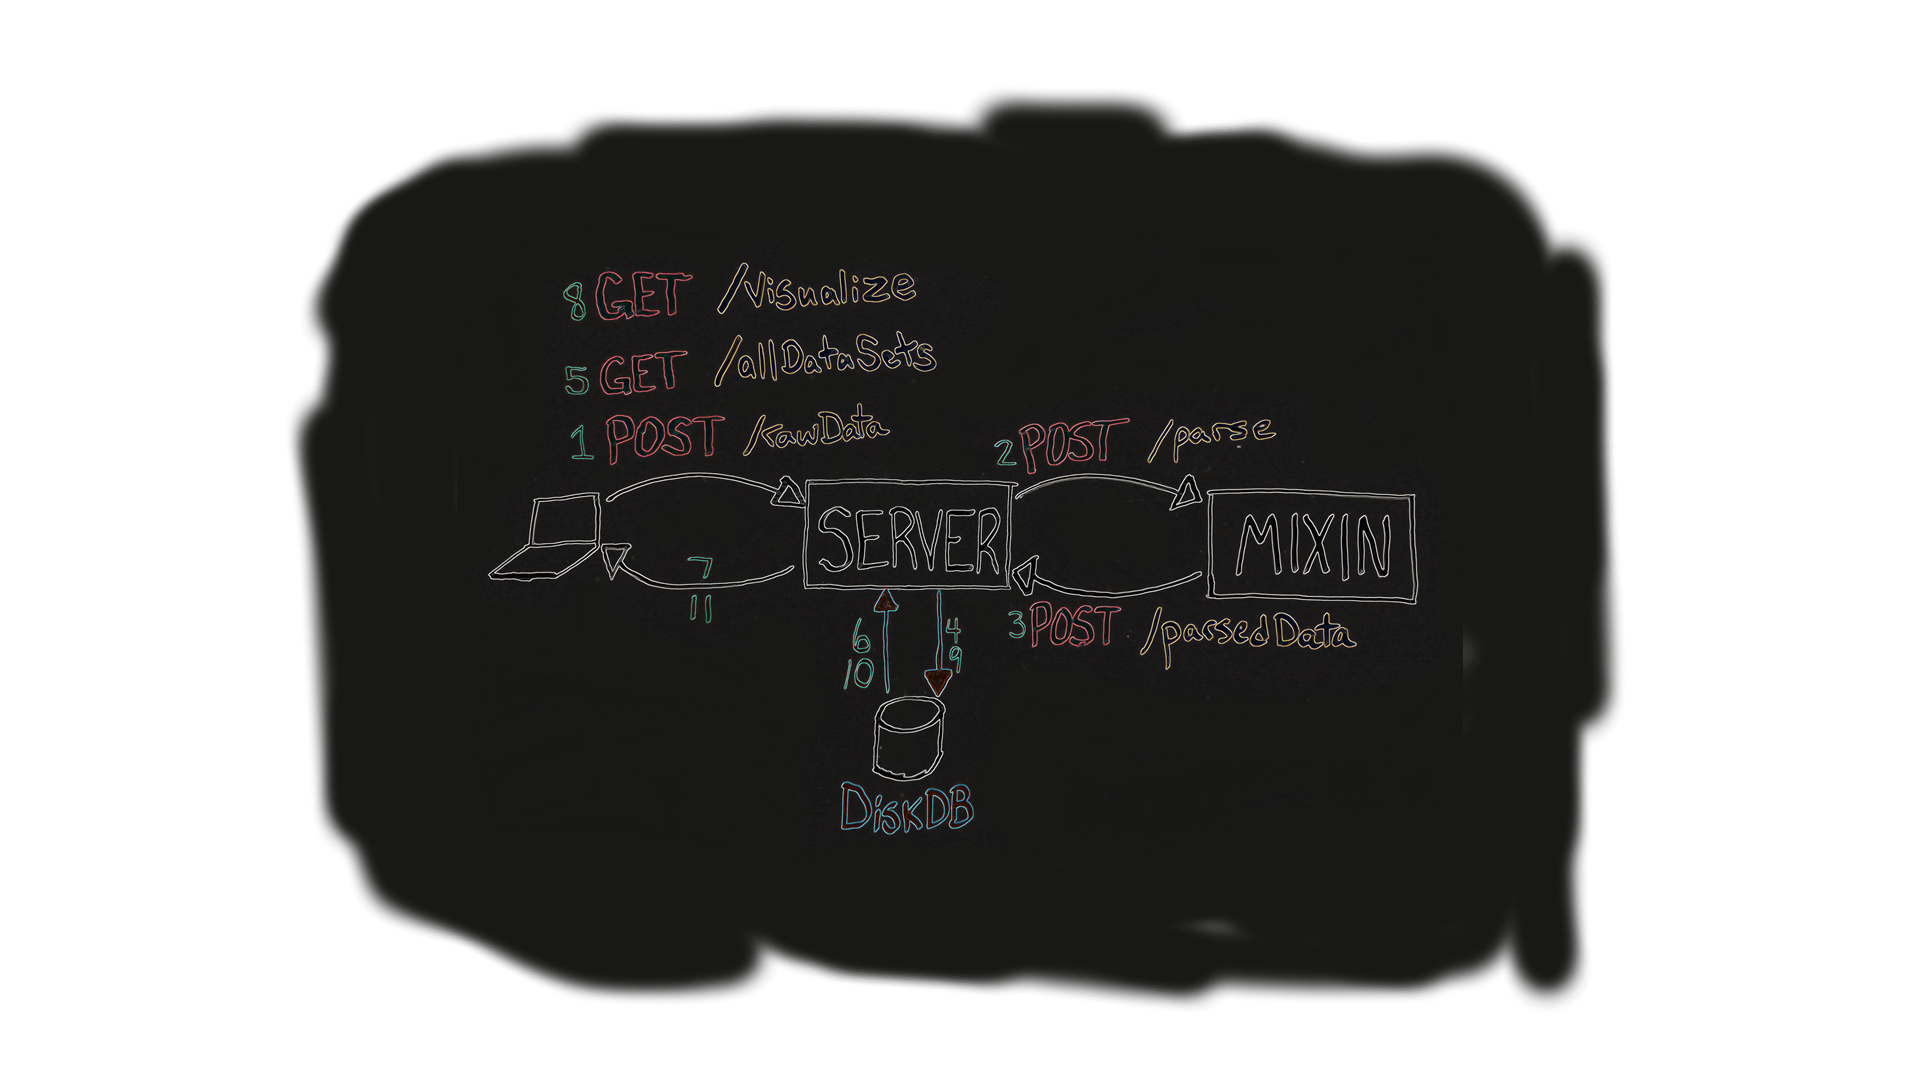 8 GET /Visualize
5 GET /allDataSets
1 POST /rawData
2 POST /parse
SERVER
MIXIN
7
11
3 POST /parsedData
6
10
4
9
DiskDB